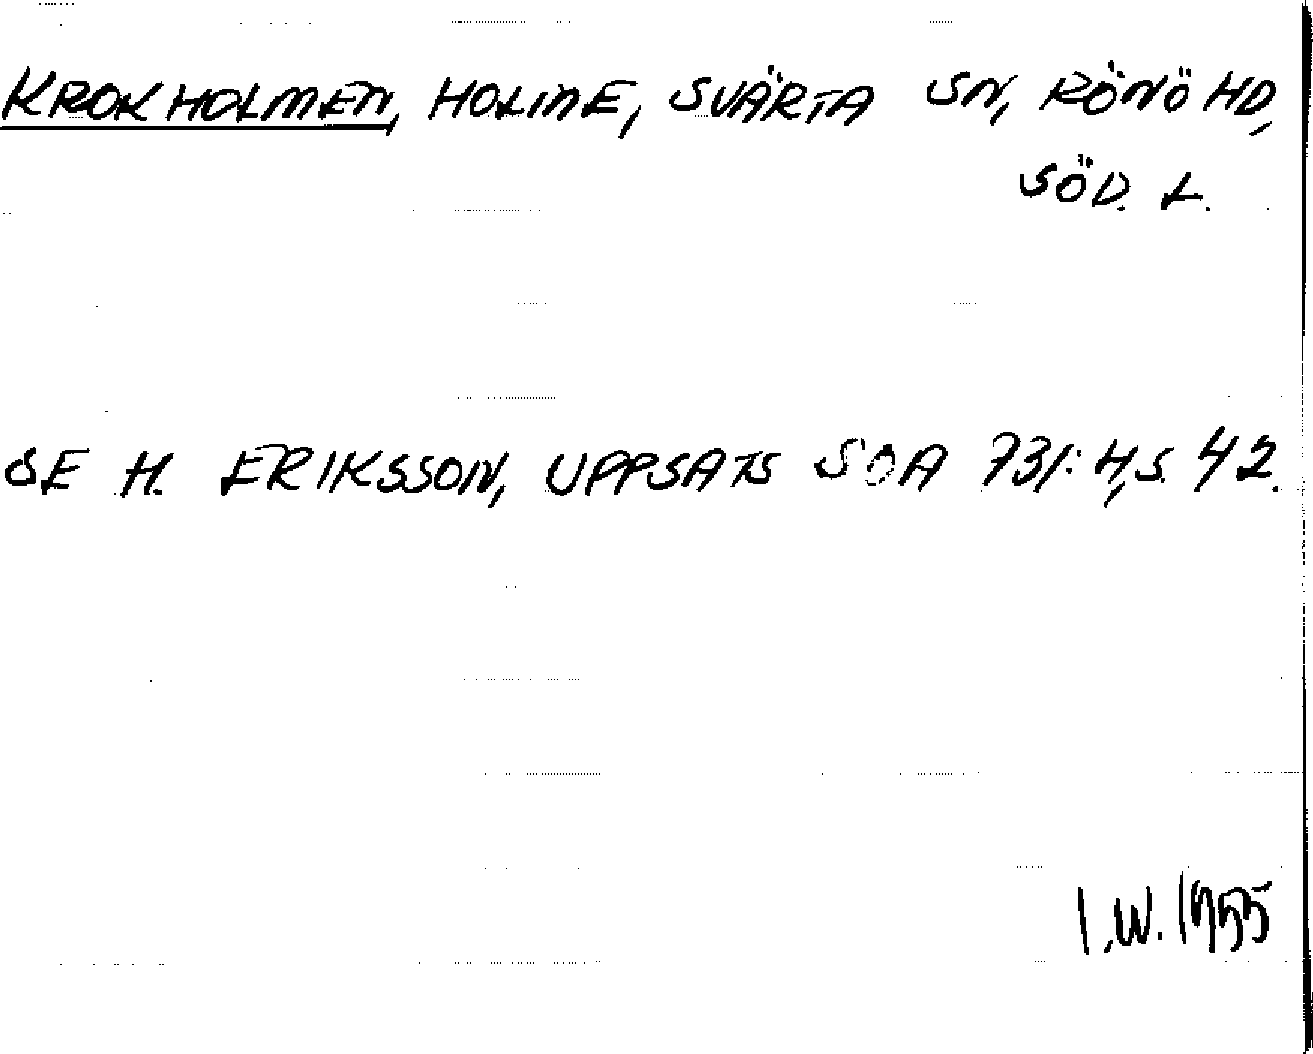 KROKHOLMEN, HOLME, SVÄRTA SN, RÖNÖ HD,
SÖD. L.
SE H. ERIKSSON, UPPSATS SOA 731:4, S. 42.
I.W. 1955